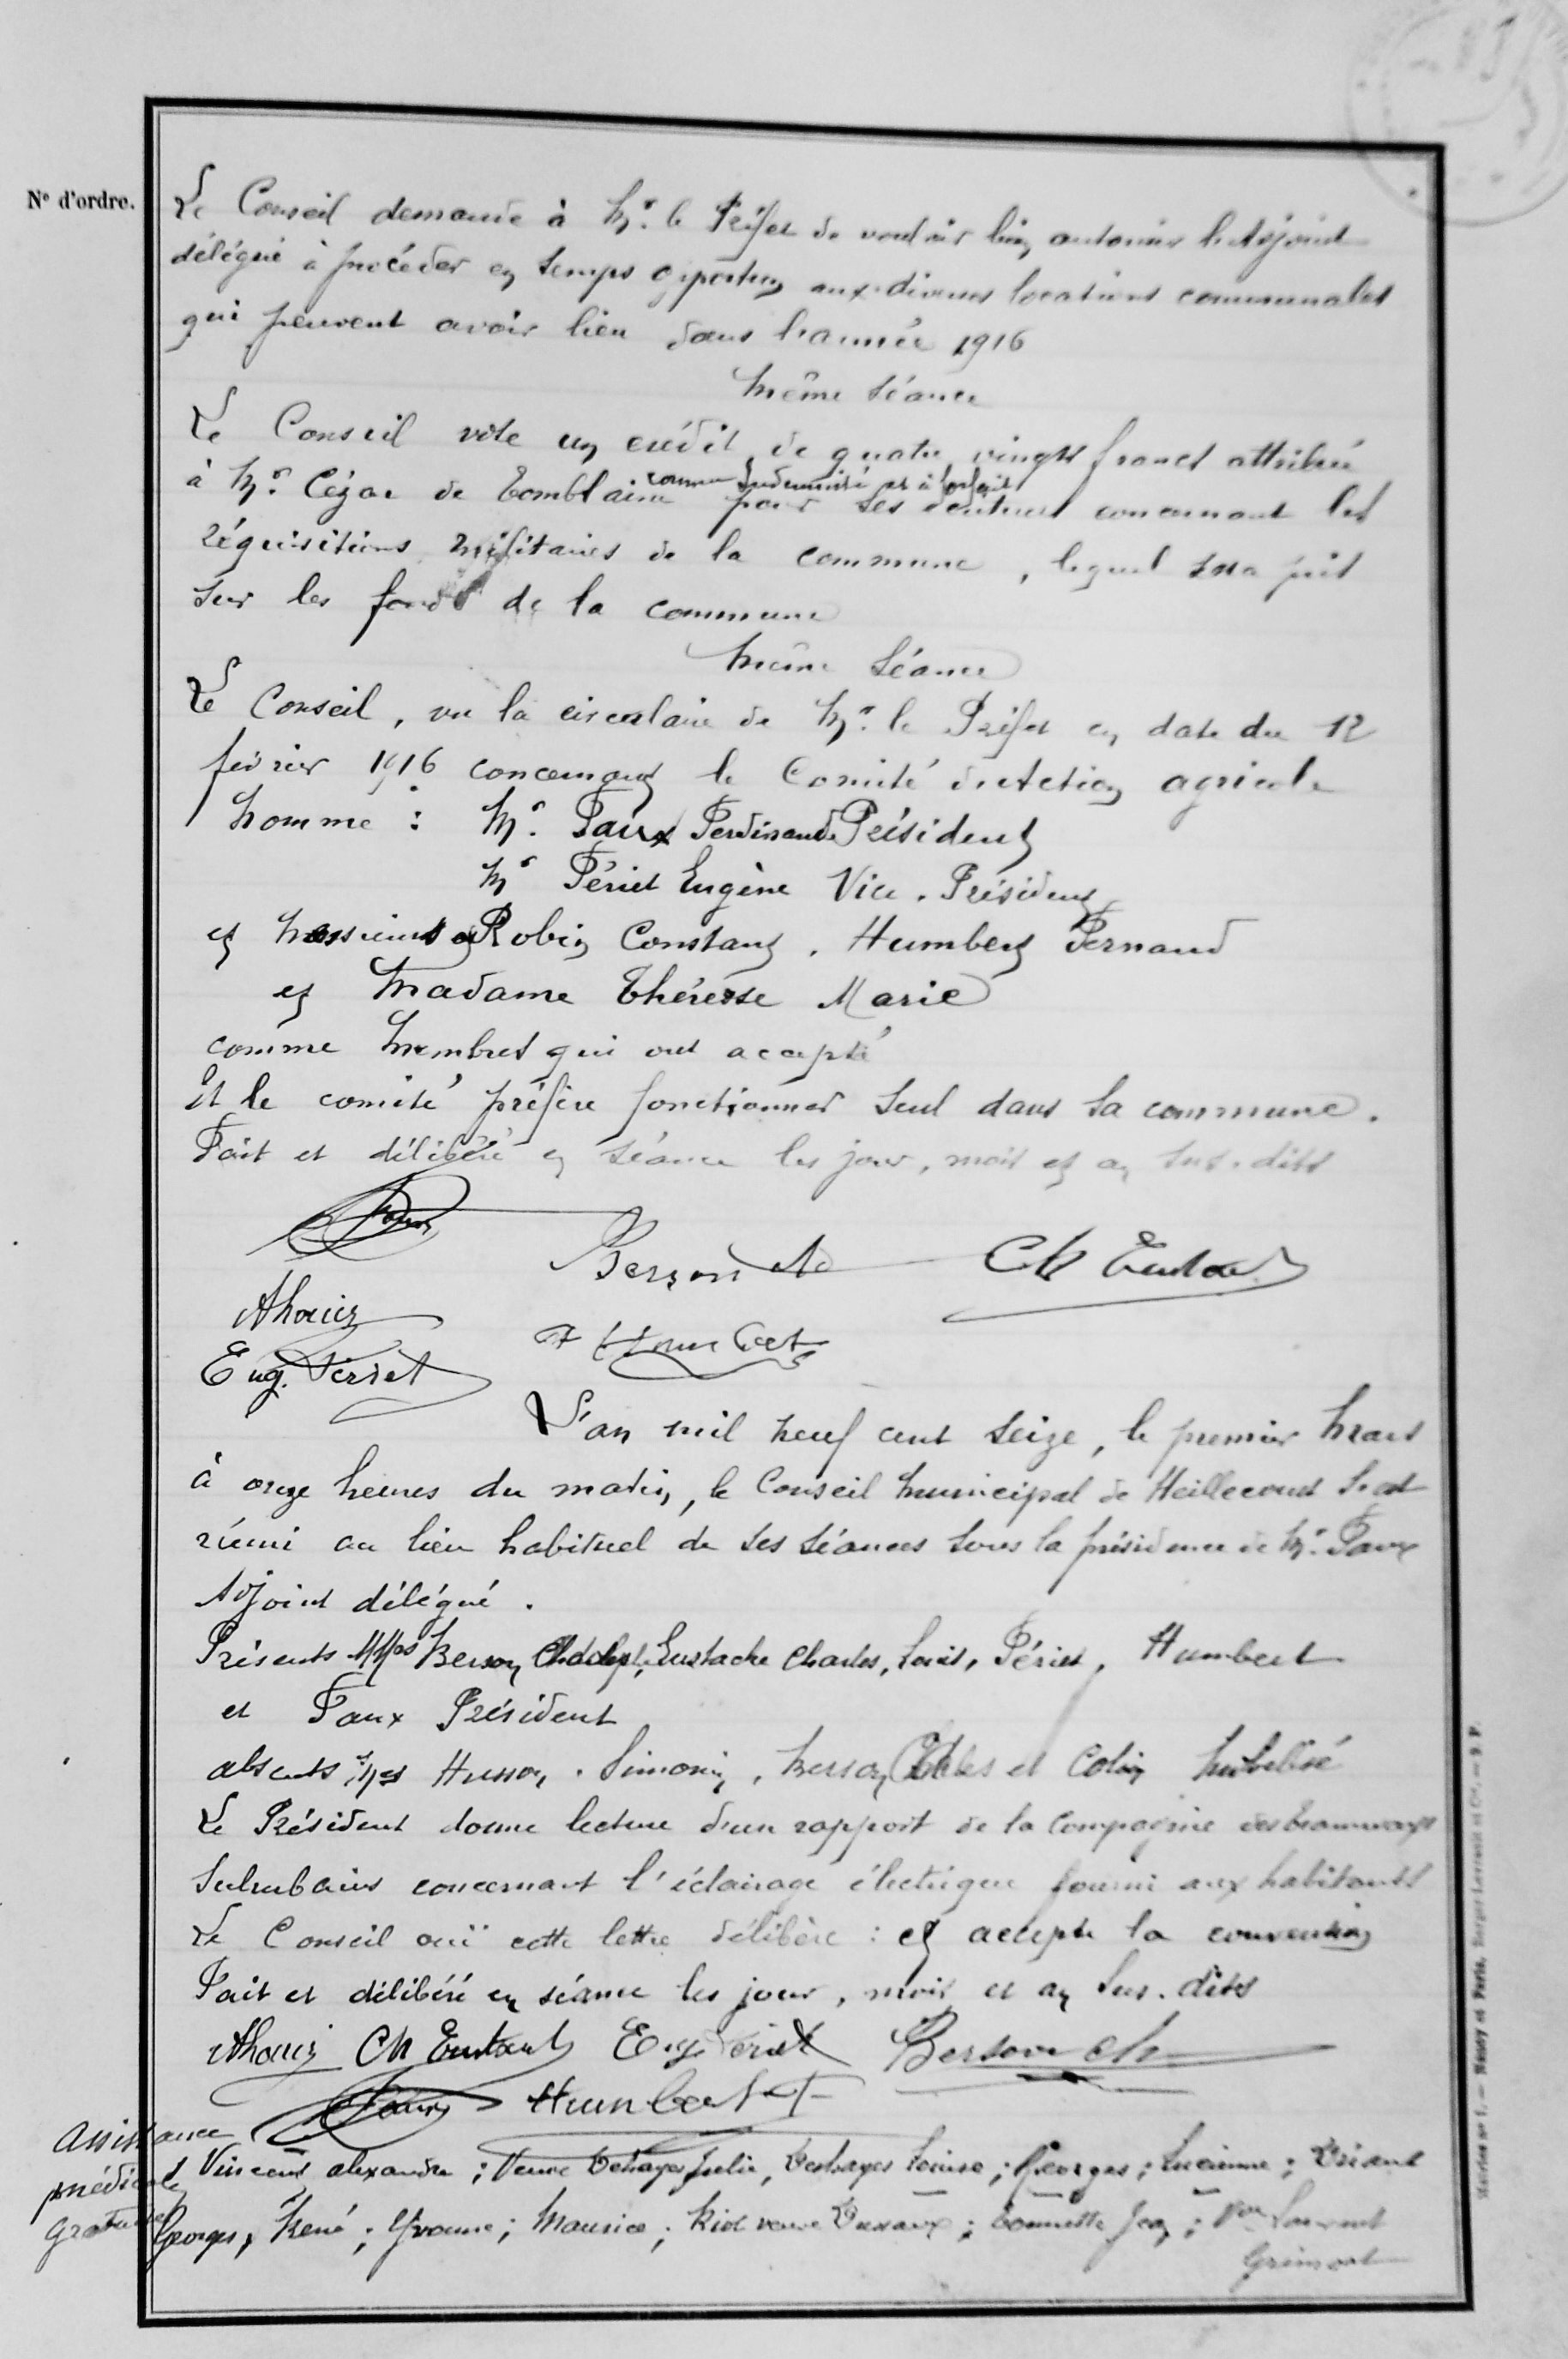 N° d'ordre.
Le Conseil demande à Mr. le Préfet de vouloir bien autoriser l'Adjoint
délégué à procéder en temps opportun aux diverses locations communales
qui peuvent avoir lieu dans l'année 1916
Même séance
Le Conseil vote un crédit de quatre vingts francs attribué
comme indemnité et à forfait
à Mr. Cézar de Tomblaine pour ses concernant les
réquisitions militaires de la commune, lequel sera pris
sur les fonds de la commune
Même Séance
Le Conseil, vu la circulaire de Mr. le Préfet en date du 12
février 1916 concernant le Comité d'Action agricole
nomme : Mr. Faux Ferdinand Président
Mr Périet Eugène Vice-Président
et Messieurs Robin Constant, Humbert Fernand
et Madame Thérèse Marie
comme Membres qui ont accepté
Et le comité préfère fonctionner seul dans sa commune.
Fait et délibéré en séance les jour, mois et an sus-dits
Faux
Berson Ad
Ch Eustache
F Humbert
Eug. Périet
L'an mil neuf cent seize, le premier Mars
à onze heures du matin, le Conseil Municipal de Heillecourt s'est
réuni au lieu habituel de ses séances sous la présidence de Mr. Faux
Adjoint délégué.
Présents MMrs Berson Eustache Charles, Périet, Humbert
et Faux Président
absents Mrs Husson, Simonin, Berson et Colin Mobilisé
Le Président donne lecture d'un rapport de la Compagnie des tramways
Suburbains concernant l'éclairage électrique fourni aux habitants
Le Conseil ouï cette lettre délibère : et accepte la convention
Fait et délibéré en séance les jour, mois et an sus-dits
Ch Eustache Eug Périet Berson
Faux Humbert F
Assistance
médicale
gratuite
Vincent Alexandre ; Veuve Deshayes Julie, Deshayes Louise ; Georges ; Lucienne ; Briant
Georges, René ; Yvonne ; Maurice ; veuve ; Jean ; Vve Laurent
Berger-Levrault et Cie
Nancy et Paris,